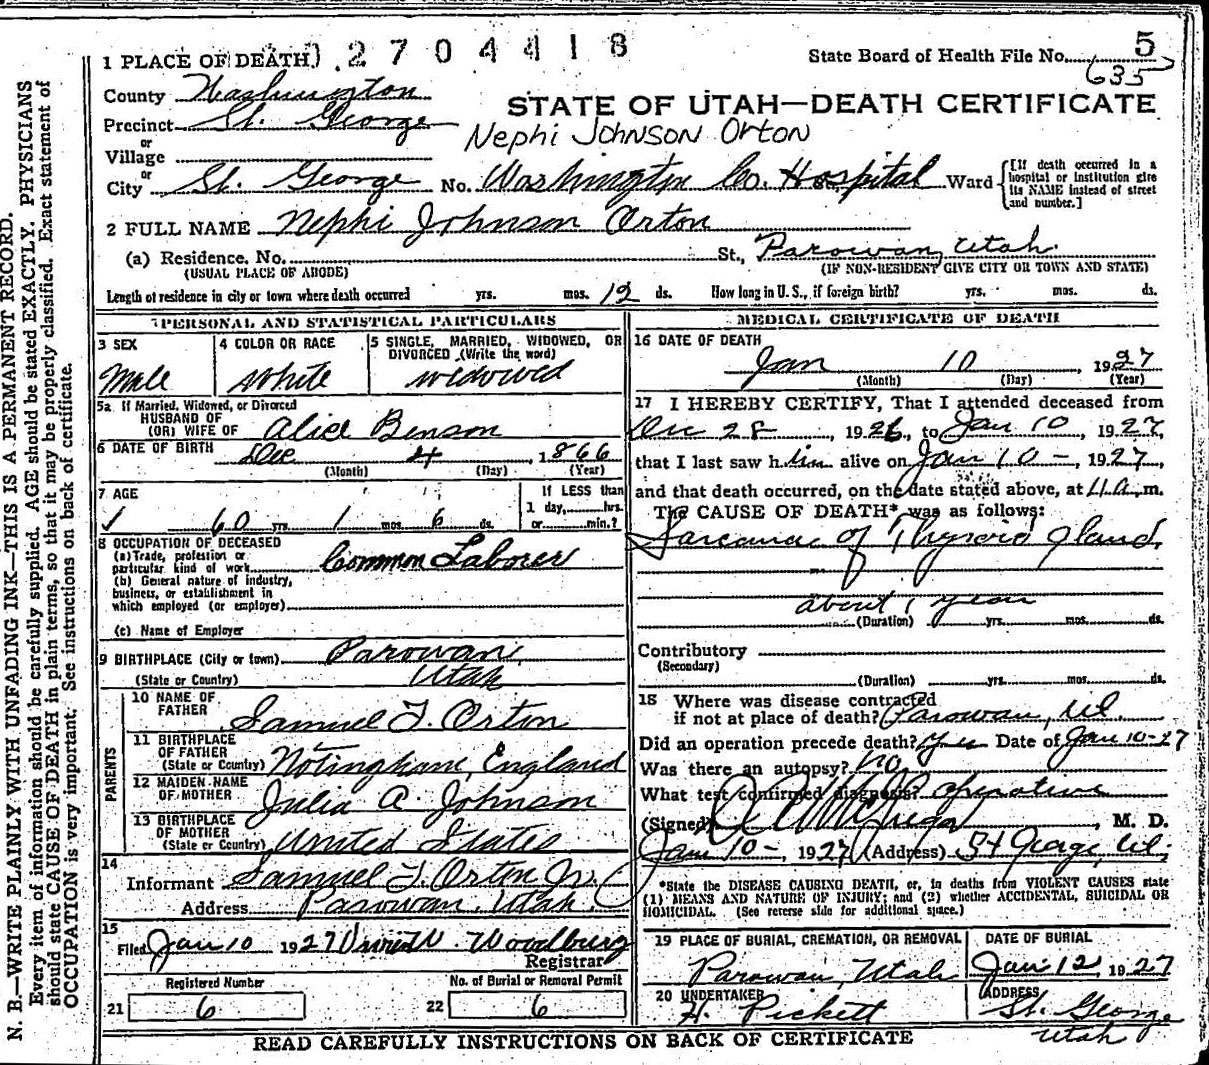 N. B.—WRITE PLAINLY WITH UNFADING INK—THIS IS A PERMANENT RECORD.
Every item of information should be carefully supplied. AGE should be stated EXACTLY. PHYSICIANS
should state CAUSE OF DEATH in plain terms, so that it may be properly classified. Exact statement of
OCCUPATION is very important. See instructions on back of certificate.
2704418
5
1 PLACE OF DEATH
State Board of Health File No.
635
County Washington
STATE OF UTAH—DEATH CERTIFICATE
Precinct St. George
Nephi Johnson Orton
or
Village
or
City St. George No. Washington Co. Hospital Ward
[If death occurred in a
hospital or institution give
its NAME instead of street
and number.]
2 FULL NAME Nephi Johnson Orton
(a) Residence. No. St., Parowan, Utah.
(USUAL PLACE OF ABODE) (IF NON-RESIDENT GIVE CITY OR TOWN AND STATE)
Length of residence in city or town where death occurred yrs. mos. 12 ds. How long in U. S., if foreign birth? yrs. mos. ds.
PERSONAL AND STATISTICAL PARTICULARS
3 SEX
Male
4 COLOR OR RACE
White
5 SINGLE, MARRIED, WIDOWED, OR
DIVORCED (Write the word)
widowed
5a If Married, Widowed, or Divorced
HUSBAND OF
(OR) WIFE OF Alice Benson
6 DATE OF BIRTH Dec 4, 1866
(Month) (Day) (Year)
7 AGE
60 yrs. 1 mos. 6 ds.
If LESS than
1 day, hrs.
or min.?
8 OCCUPATION OF DECEASED
(a) Trade, profession or
particular kind of work Common Laborer
(b) General nature of industry,
business, or establishment in
which employed (or employer)
(c) Name of Employer
9 BIRTHPLACE (City or town) Parowan,
(State or Country) Utah
PARENTS
10 NAME OF
FATHER Samuel T. Orton
11 BIRTHPLACE
OF FATHER
(State or Country) Notingham, England
12 MAIDEN NAME
OF MOTHER Julia A Johnson
13 BIRTHPLACE
OF MOTHER
(State or Country) United States
14
Informant Samuel T. Orton Jr.
Address Parowan, Utah.
15
Filed Jan 10 1927 W. Woodbury
Registrar
Registered Number
21 6
No. of Burial or Removal Permit
22 6
MEDICAL CERTIFICATE OF DEATH
16 DATE OF DEATH
Jan 10, 1927
(Month) (Day) (Year)
17 I HEREBY CERTIFY, That I attended deceased from
Dec 28, 1926, to Jan 10, 1927,
that I last saw him alive on Jan 10-, 1927,
and that death occurred, on the date stated above, at 4 a.m.
The CAUSE OF DEATH* was as follows:
of Thyroid Gland.
about 1 year
(Duration) yrs. mos. ds.
Contributory
(Secondary)
(Duration) yrs. mos. ds.
18 Where was disease contracted
if not at place of death? Parowan, Ut.
Did an operation precede death? Yes Date of Jan 10-27
Was there an autopsy? no
What test confirmed diagnosis? Operation
(Signed) M. D.
Jan 10-, 1927 (Address) St George, Ut.
*State the DISEASE CAUSING DEATH, or, in deaths from VIOLENT CAUSES state
(1) MEANS AND NATURE OF INJURY; and (2) whether ACCIDENTAL, SUICIDAL OR
HOMICIDAL. (See reverse side for additional space.)
19 PLACE OF BURIAL, CREMATION, OR REMOVAL
Parowan, Utah
DATE OF BURIAL
Jan 12, 1927
20 UNDERTAKER
H. Pickett
ADDRESS
St. George
Utah
READ CAREFULLY INSTRUCTIONS ON BACK OF CERTIFICATE